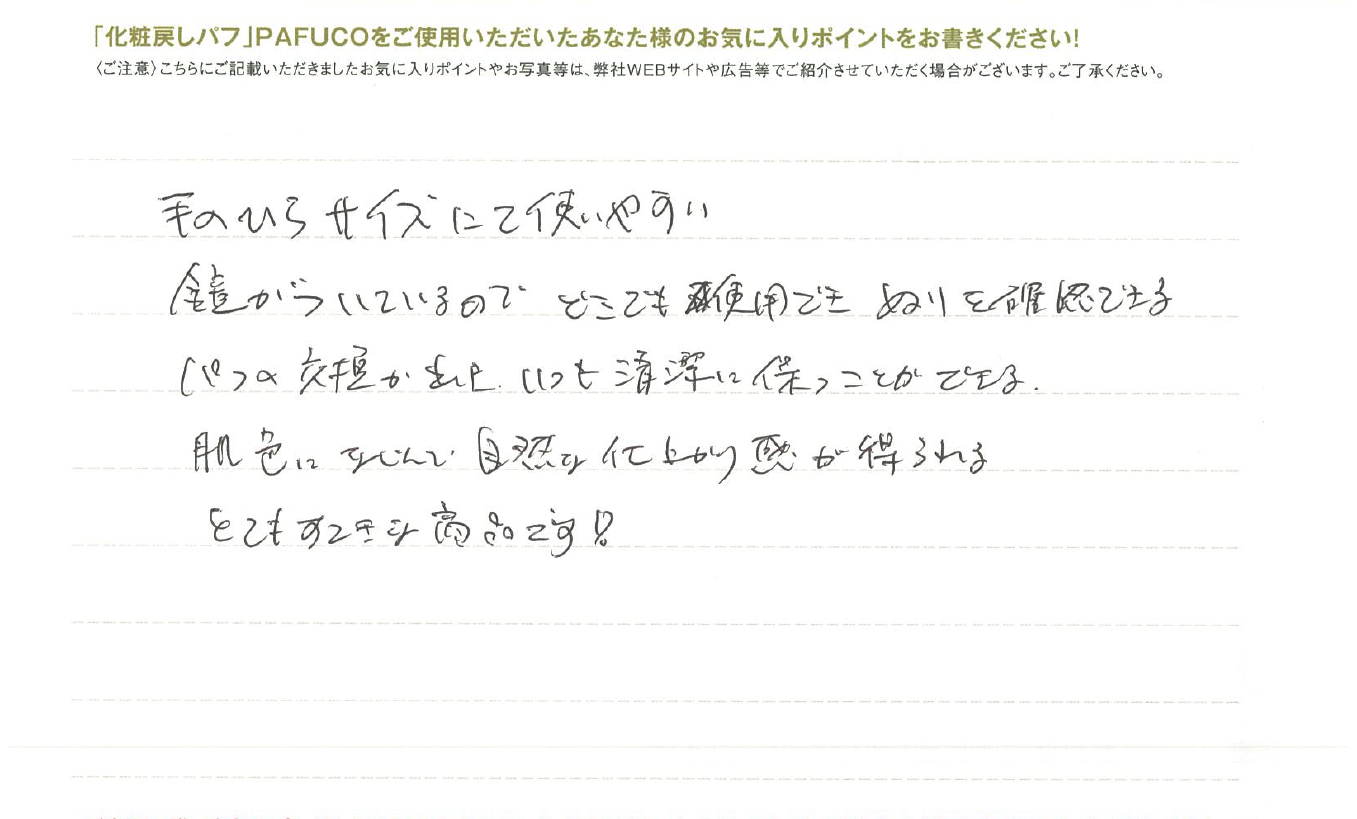 「化粧戻しパフ」PAFUCOをご使用いただいたあなた様のお気に入りポイントをお書きください!
〈ご注意〉こちらにご記載いただきましたお気に入りポイントやお写真等は、弊社WEBサイトや広告等でご紹介させていただく場合がございます。ご了承ください。
手のひらサイズにて使いやすい
鏡がついているので どこでも使用でき ぬりを確認できる
パフの交換が出来 いつも清潔に保つことができる.
肌色になじんで自然な仕上がり感が得られる
とてもすてきな商品です!!